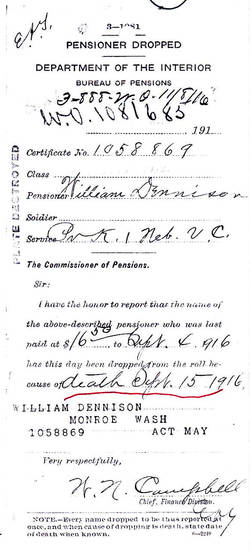 3-1081
PENSIONER DROPPED
DEPARTMENT OF THE INTERIOR
BUREAU OF PENSIONS
3-555-W.O. 11/8/16
W.O. 1081685
191
Certificate No. 1058869
Class
Pensioner William Dennison
Soldier
Service Pv K. 1 Neb. V. C.
The Commissioner of Pensions.
Sir:
I have the honor to report that the name of
the above-described pensioner who was last
paid at $16 50 to Sept. 4, 916
has this day been dropped from the roll be-
cause of death Sept. 15 1916.
WILLIAM DENNISON
MONROE WASH
1058869 ACT MAY
Very respectfully,
W. N. Campbell
Chief, Finance Division.
NOTE.—Every name dropped to be thus reported at
once, and when cause of dropping is death, state date
of death when known.
PLATE DESTROYED